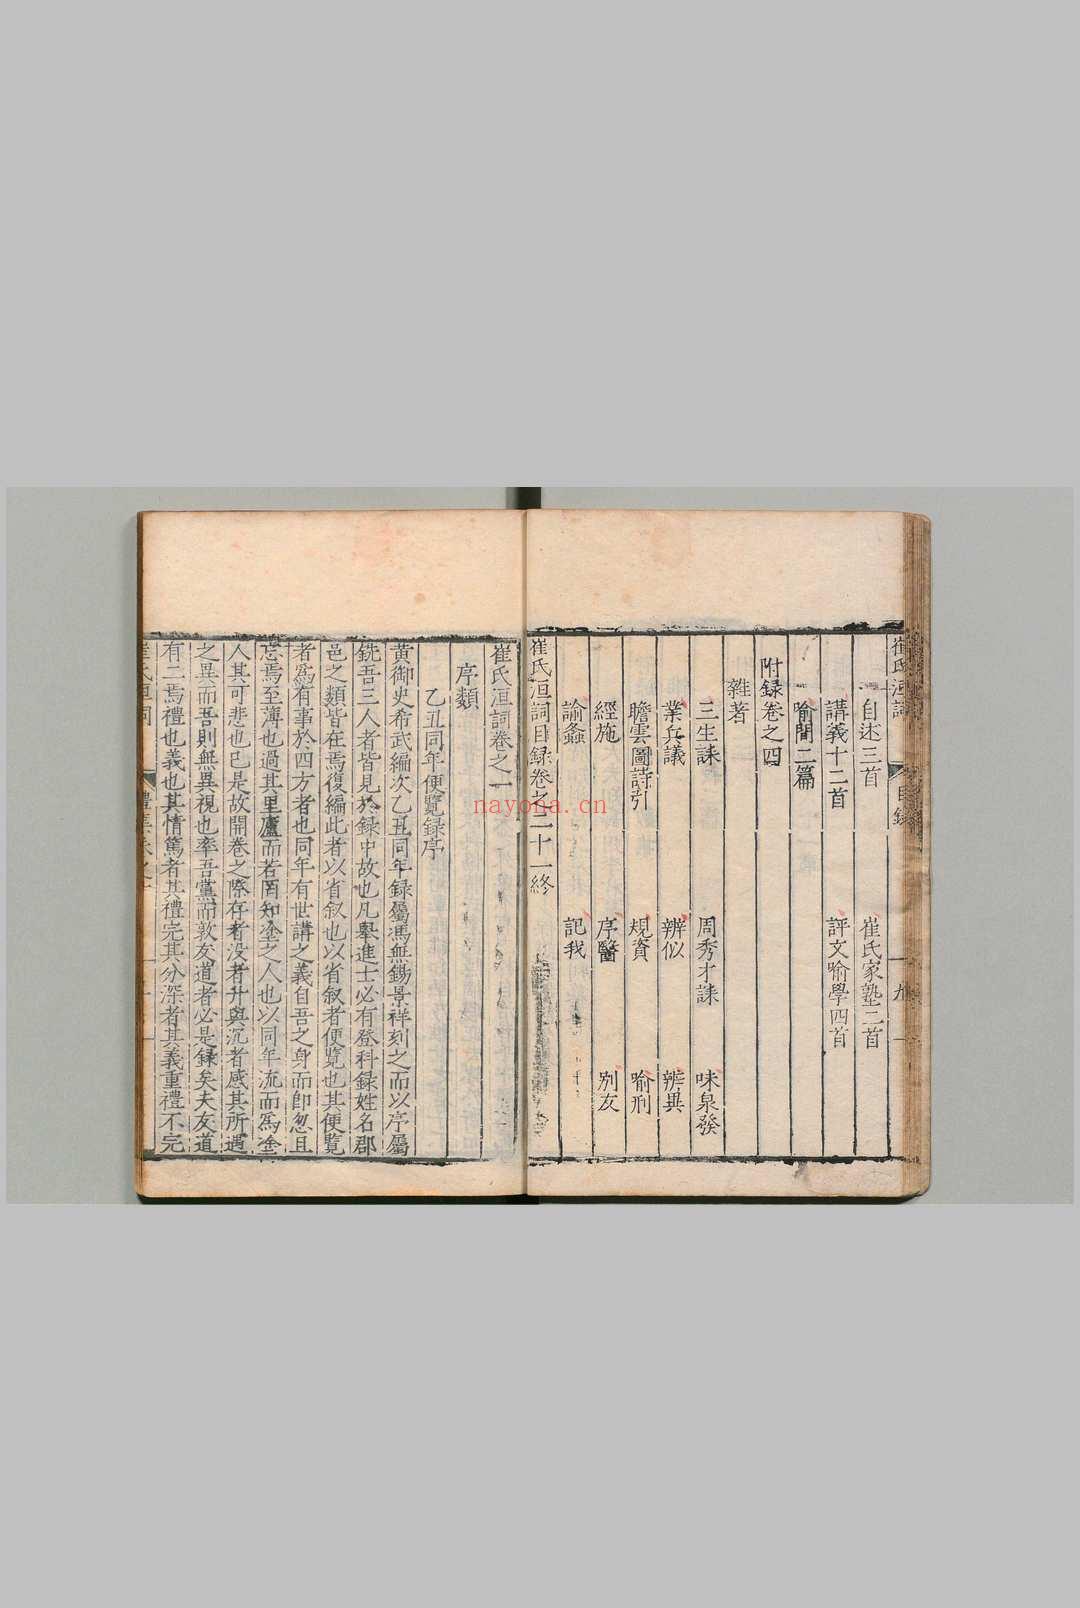 崔氏洹詞
目錄
九
自述三首
崔氏家塾二首
講義十二首
評文喻學四首
喻閒二篇
附録卷之四
雜著
三生誄
周秀才誄
味泉發
業兵議
辨似
辨異
瞻雲圖詩引
規資
喻刑
經施
序醫
別友
諭蠡
記我
崔氏洹詞目録卷之二十一終
崔氏洹詞卷之一
序類
乙丑同年便覽録序
黄御史希武編次乙丑同年録屬馮無錫景祥刻之而以序屬
銑吾三人者皆見於録中故也凡舉進士必有登科録姓名郡
邑之類皆在焉復編此者以省叙也以省叙者便覽也其便覽
者爲有事於四方者也同年有世講之義自吾之身而卽忽且
忘焉至薄也過其里廬而若罔知塗之人也以同年流而爲塗
人其可悲也已是故開卷之際存者没者升與沉者感其所遇
之異而吾則無異視也率吾黨而敦友道者必是録矣夫友道
有二焉禮也義也其情篤者其禮完其分深者其義重禮不完
nayona.cn